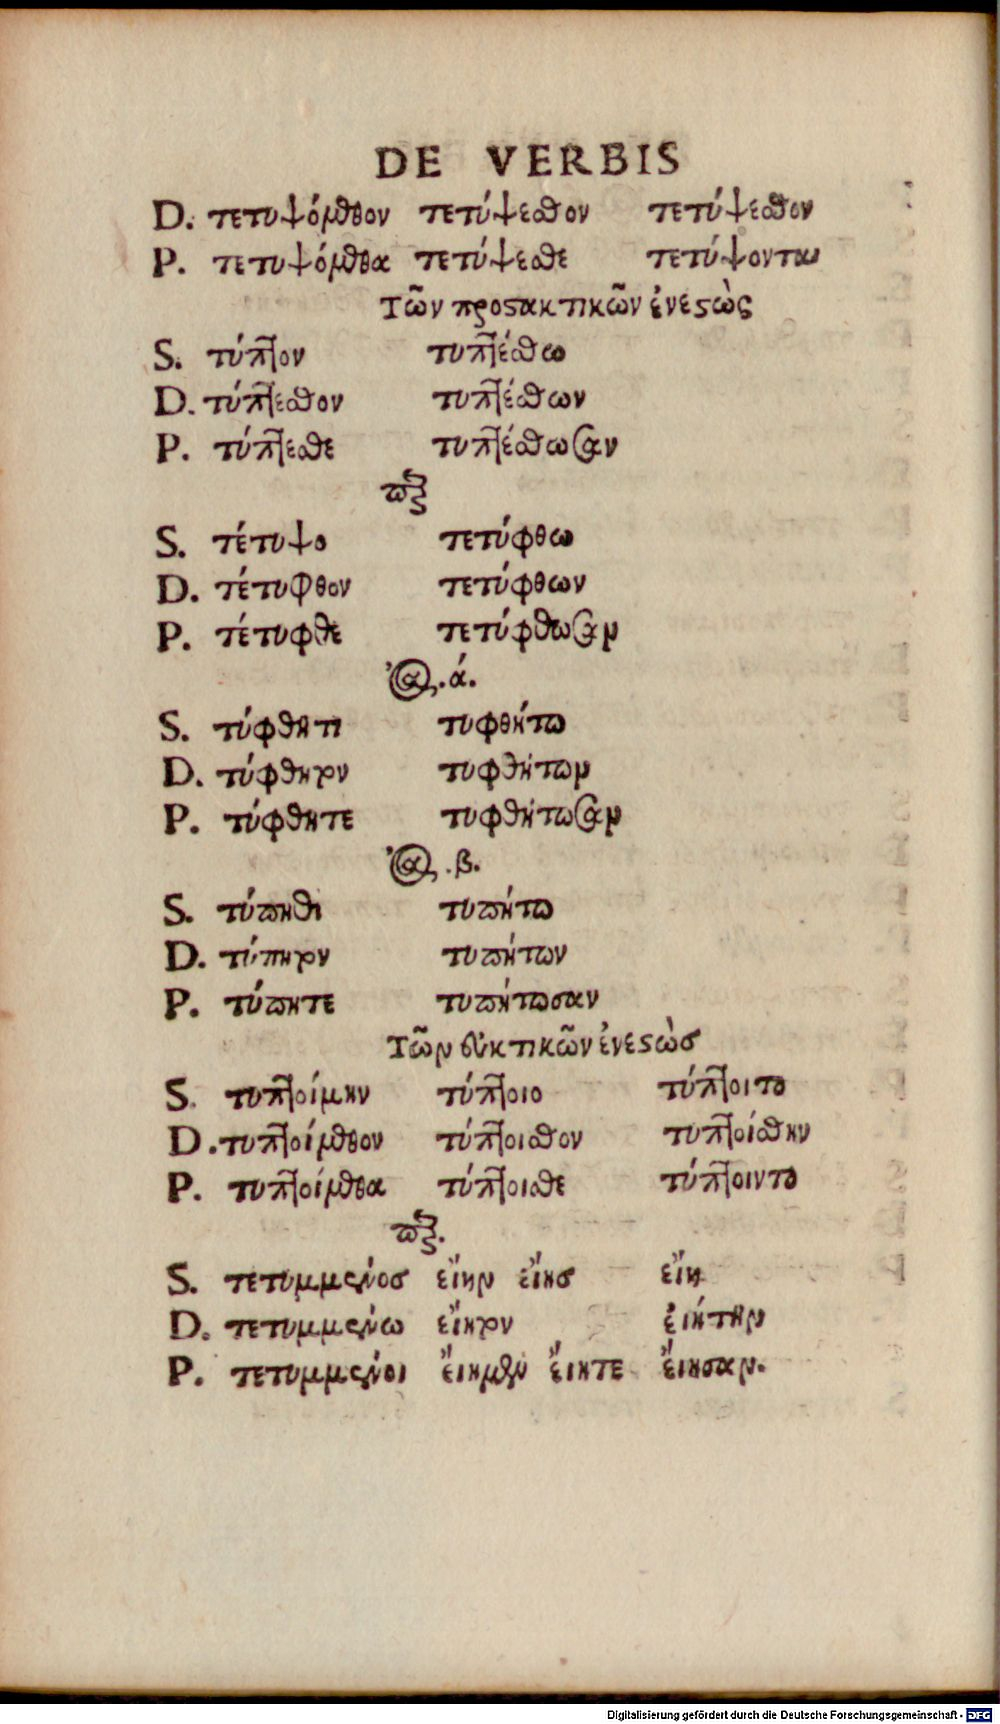 DE VERBIS
D. τετυψόμεθον τετύψεσθον τετύψεσθον
P. τετυψόμεθα τετύψεσθε τετύψονται
Τῶν προστακτικῶν ἐνεστὼς
S. τύπτου τυπτέσθω
D. τύπτεσθον τυπτέσθων
P. τύπτεσθε τυπτέσθωσαν
S. τέτυψο τετύφθω
D. τέτυφθον τετύφθων
P. τέτυφθε τετύφθωσαν
ά.
S. τύφθητι τυφθήτω
D. τύφθητον τυφθήτων
P. τύφθητε τυφθήτωσαν
β.
S. τύπηθι τυπήτω
D. τύπητον τυπήτων
P. τύπητε τυπήτωσαν
Τῶν εὐκτικῶν ἐνεστὼσ
S. τυπτοίμην τύπτοιο τύπτοιτο
D. τυπτοίμεθον τύπτοισθον τυπτοίσθην
P. τυπτοίμεθα τύπτοισθε τύπτοιντο
S. τετυμμένοσ εἴην εἴησ εἴη
D. τετυμμένω εἴητον ἐιήτην
P. τετυμμένοι ἔιημεν ἔιητε ἔιησαν.
Digitalisierung gefördert durch die Deutsche Forschungsgemeinschaft - DFG